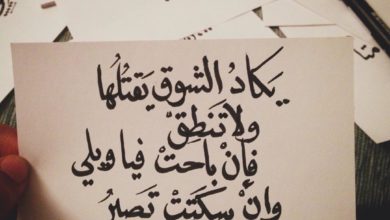 يَكَادُ الشوق يَقتُلُها
ولا تَنطِقْ
فإنْ باحتْ فيا ويلي
وإنْ سكتَتْ تَصيرُ